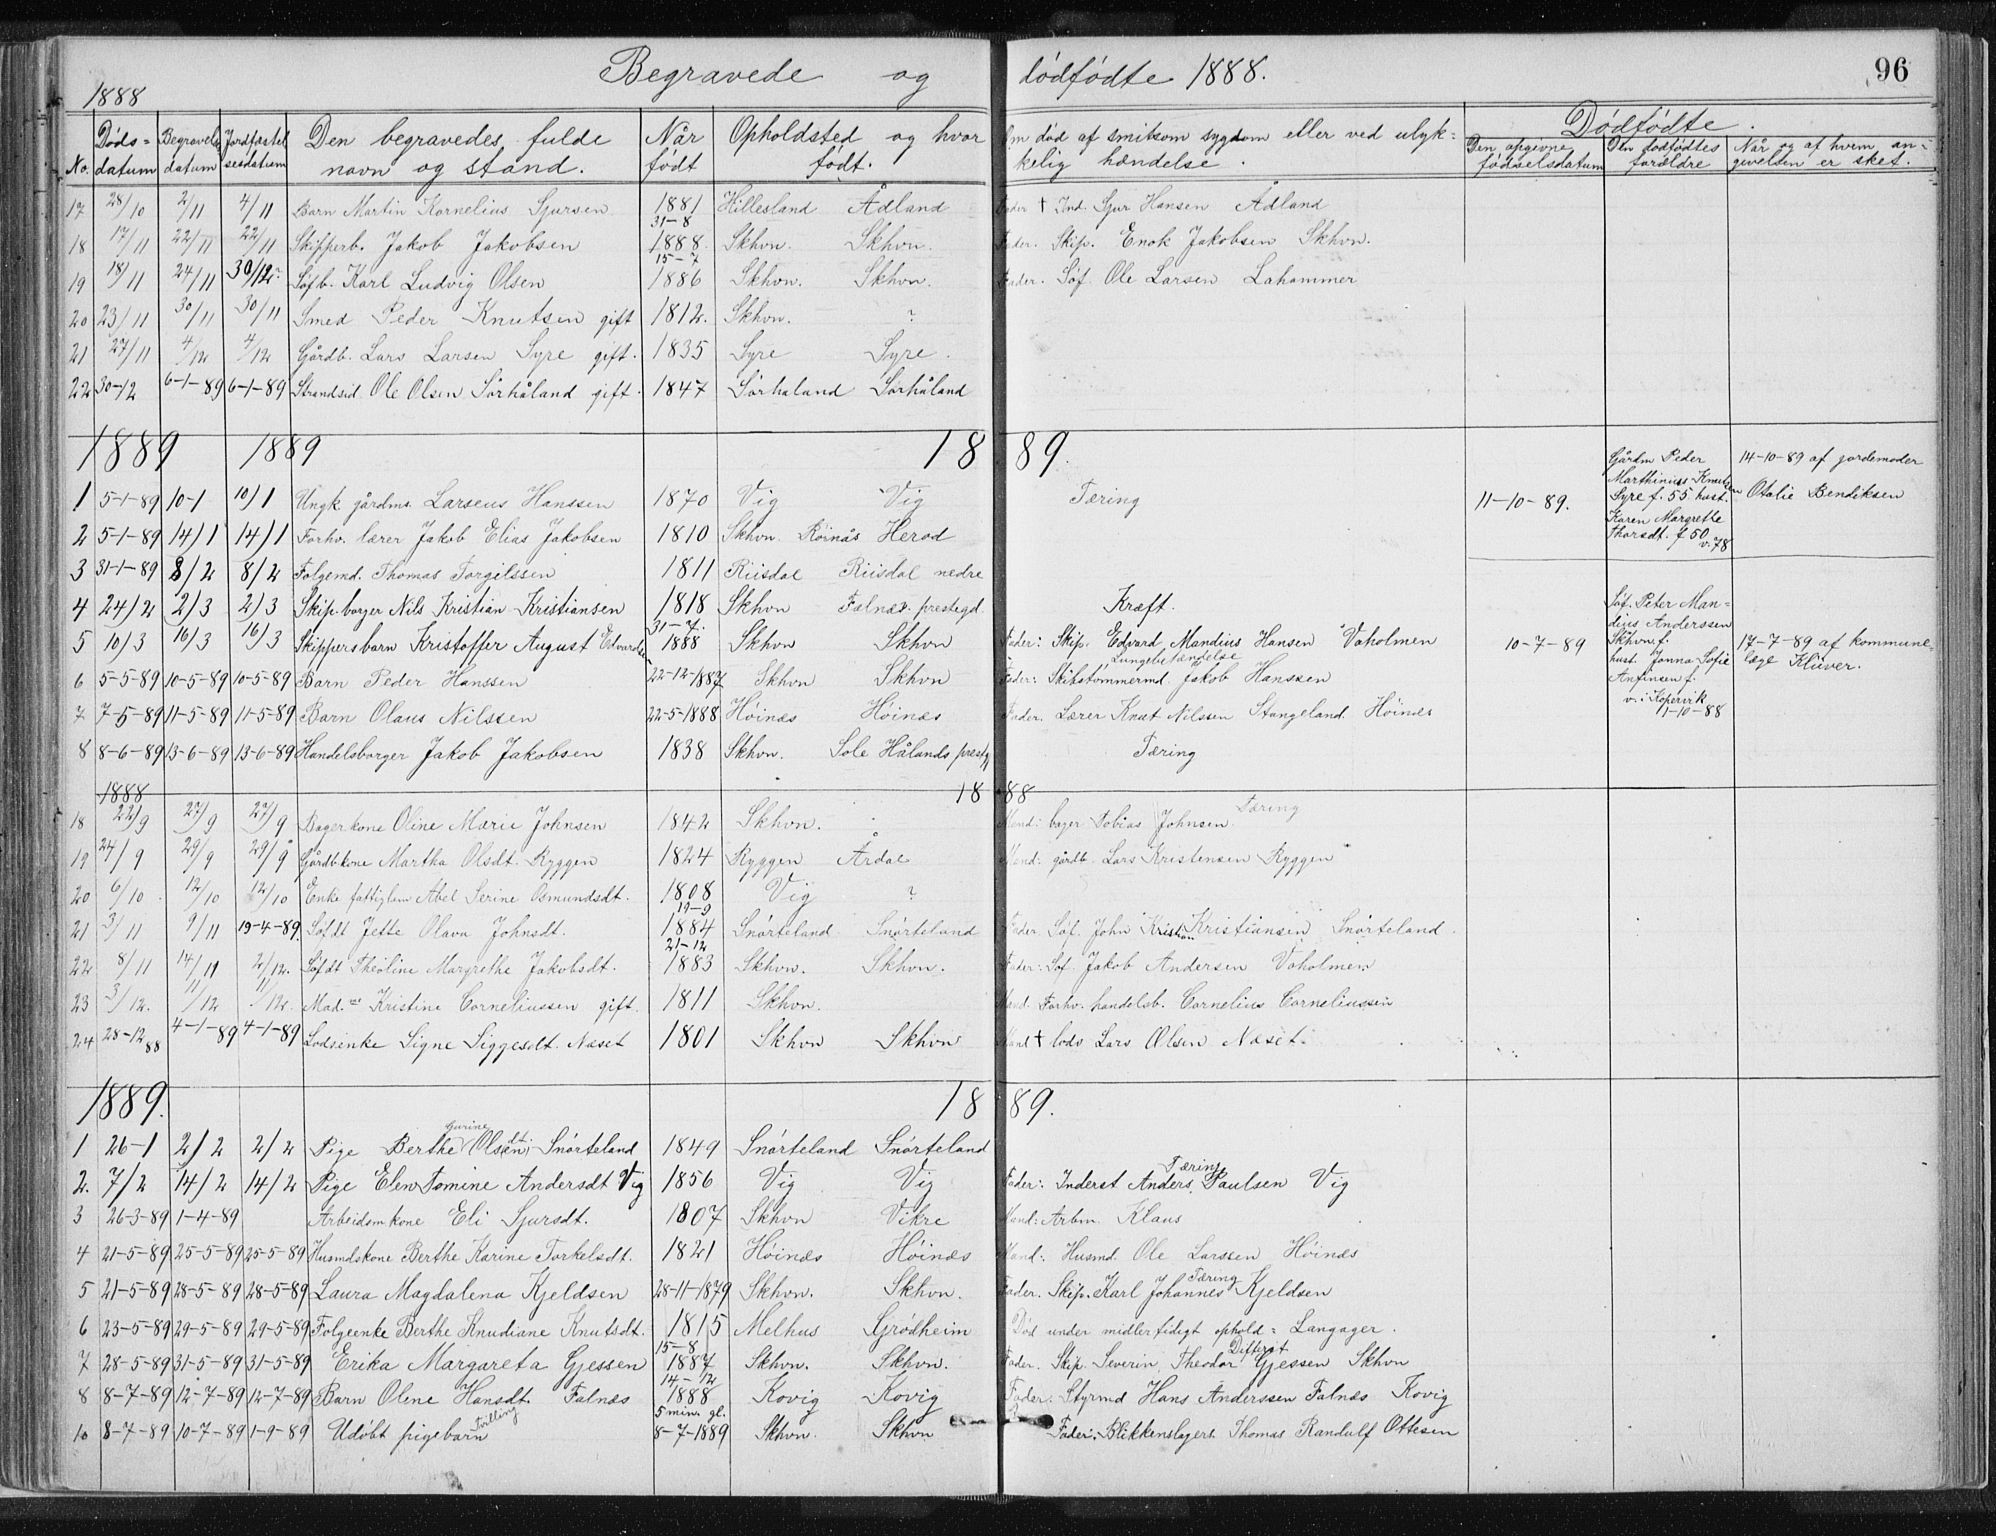 Begravede og dødfødte 1888. 96
1888
No. Døds=datum Begravelsdatum Jordfæstelsesdatum Den begravedes fulde navn og stand. Når født Opholdsted og hvor født. Om død af smitsom sygdom eller ved ulykkelig hændelse. Dødfødte.
Den opgivne fødselsdatum Den dødfødtes forældre Når og af hvem angivelsen er sket.
17 28/10 2/11 4/11 Barn Martin Kornelius Sjursen 1881 Hillesland Ådland Fader † Ind. Sjur Hansen Ådland
18 17/11 22/11 22/11 Skipperb. Jakob Jakobsen 31-8 1888. Skhvn. Skhvn. Fader. Skip. Enok Jakobsen Skhvn.
19 18/11 24/11 30/12 Søfb. Karl Ludvig Olsen 15-7 1886 Skhvn. Skhvn. Fader. Søf. Ole Larsen Lahammer
20 23/11 30/11 30/11 Smed Peder Knutsen gift 1812. Skhvn. ?
21 27/11 4/12 4/12 Gårdb. Lars Larsen Syre gift. 1835 Syre Syre.
22 30-12 6-1-89 6-1-89 Strandsid. Ole Olsen Sørhåland gift. 1847 Sørhaland Sørhåland
1889 1889 1889.
1 5-1-89 10-1 10/1 Ungk gårdms. Larseus Hanssen 1870 Vig Vig Tæring
2 5-1-89 14/1 14/1 Forhv. lærer Jakob Elias Jakobsen 1810 Skhvn. Røinås Herod
3 31-1-89 8/2 8/2 Folgemd. Thomas Torgilssen 1811 Riisdal Riisdal nedre
4 24/2 2/3 2/3 Skip.borger Nils Kristian Kristiansen 1818 Skhvn Falnæs prestegd. Kræft.
5 10/3 16/3 16/3 Skippersbarn Kristoffer August Edvardsen 31-7. 1888 Skhvn Skhvn Fader: Skip. Edvard Mandius Hansen Vaholmen
6 5-5-89 10-5-89 10-5-89 Barn Peder Hanssen 22-12-1887 Skhvn Skhvn Lungebetændelse Fader: Skibstømmermd Jakob Hanssen
7 7-5-89 11-5-89 11-5-89 Barn Olaus Nilssen 22-5-1888 Høinæs Høinæs Fader. Lærer Knut Nilssen Stangeland. Høinæs
8 8-6-89 13-6-89 13-6-89 Handelsborger Jakob Jakobsen 1838 Skhvn. Sole Hålands prestg Tæring
11-10-89. Gårdm Peder Marthinius Knutsen Syre f. 55 hust. Karen Margrethe Thorsdt. f 50 v. 78
14-10-89 af jordemoder Otalie Bendiksen
10-7-89 Søf. Peter Mandius Anderssen Skhvn f. hust. Jonna Sofie Anfinsen f. v. i Kopervik 11-10-88
17-7-89 af kommunelæge Klüver.
1888 1888
18 22/9 27/9 27/9 Bagerkone Oline Marie Johnsen 1842 Skhvn. Mand: bager Tobias Johnsen Tæring
19 24/9 29/9 29/9 Gårdbkone Martha Olsdt. Ryggen 1824 Ryggen Årdal Mand: gårdb. Lars Kristensen Ryggen
20 6/10 12/10 12/10 Enke fattiglem Abel Serine Osmundsdt. 1808 Vig ?
21 3/11 9/11 19-4-89. Søfdt Jette Olava Johnsdt. 19-9 1884 Snørteland Snørteland Fader. Søf. John Kristian Kristiansen Snørteland.
22 8/11 14/11 2/12. Søfdt Theoline Margrethe Jakobsdt. 21-12 1883 Skhvn. Skhvn. Fader: Søf. Jakob Andersen Vaholmen
23 3/12. 11/12 11/12. Mad. Kristine Corneliussen gift. 1811 Skhvn. Mand. Forhv. handelsb. Cornelius Corneliussen
24 28-12 88 4-1-89 4-1-89 Lodsenke Signe Siggesdt. Næset 1801 Skhvn Skhvn Mand † lods Lars Olsen Næset.
1889. 1889.
1 26-1 2/2 2/2 Pige Berthe Gurine Olsdt. Snørteland 1849 Snørteland Snørteland
2. 7/2 14/2 14/2 Pige Elen Tomine Andersdt Vig 1856 Vig Vig Tæring Fader: Inderst Anders Paulsen Vig
3 26-3-89 1-4-89 Arbeidsmkone Eli Sjursdt. 1807 Skhvn Vikre Mand: Arbm. Klaus
4 21-5-89 25-5-89 25-5-89 Husmdskone Berthe Karine Torkelsdt. 1821 Høinæs Høinæs Mand: Husmd. Ole Larssen Høinæs
5 21-5-89 28-5-89 28-5-89 Laura Magdalena Kjeldsen 28-11-1879 Skhvn. Skhvn. Tæring Fader. Skip. Karl Johannes Kjeldsen
6 23-5-89 29-5-89 29-5-89 Folgeenke Berthe Knudiane Knutsdt. 1815 Melhus Grødheim Død under midlertidigt ophold: Langager.
7 28-5-89 31-5-89 31-5-89 Erika Margareta Gjessen 15-8 1887 Skhvn. Skhvn. Difterit Fader. Skip. Severin Theodor Gjessen Skhvn
8 8-7-89 12-7-89 12-7-89 Barn Olene Hansdt. Falnæs 14-12 1888 Kovig Kovig Fader. Styrmd Hans Anderssen Falnæs Kovig
10 8-7-89 10-7-89 1-9-89 Udøbt pigebarn tvilling 5 min. gl. 8-7-1889 Skhvn. Skhvn Fader: Blikkenslagers. Thomas Randulf Ottesen